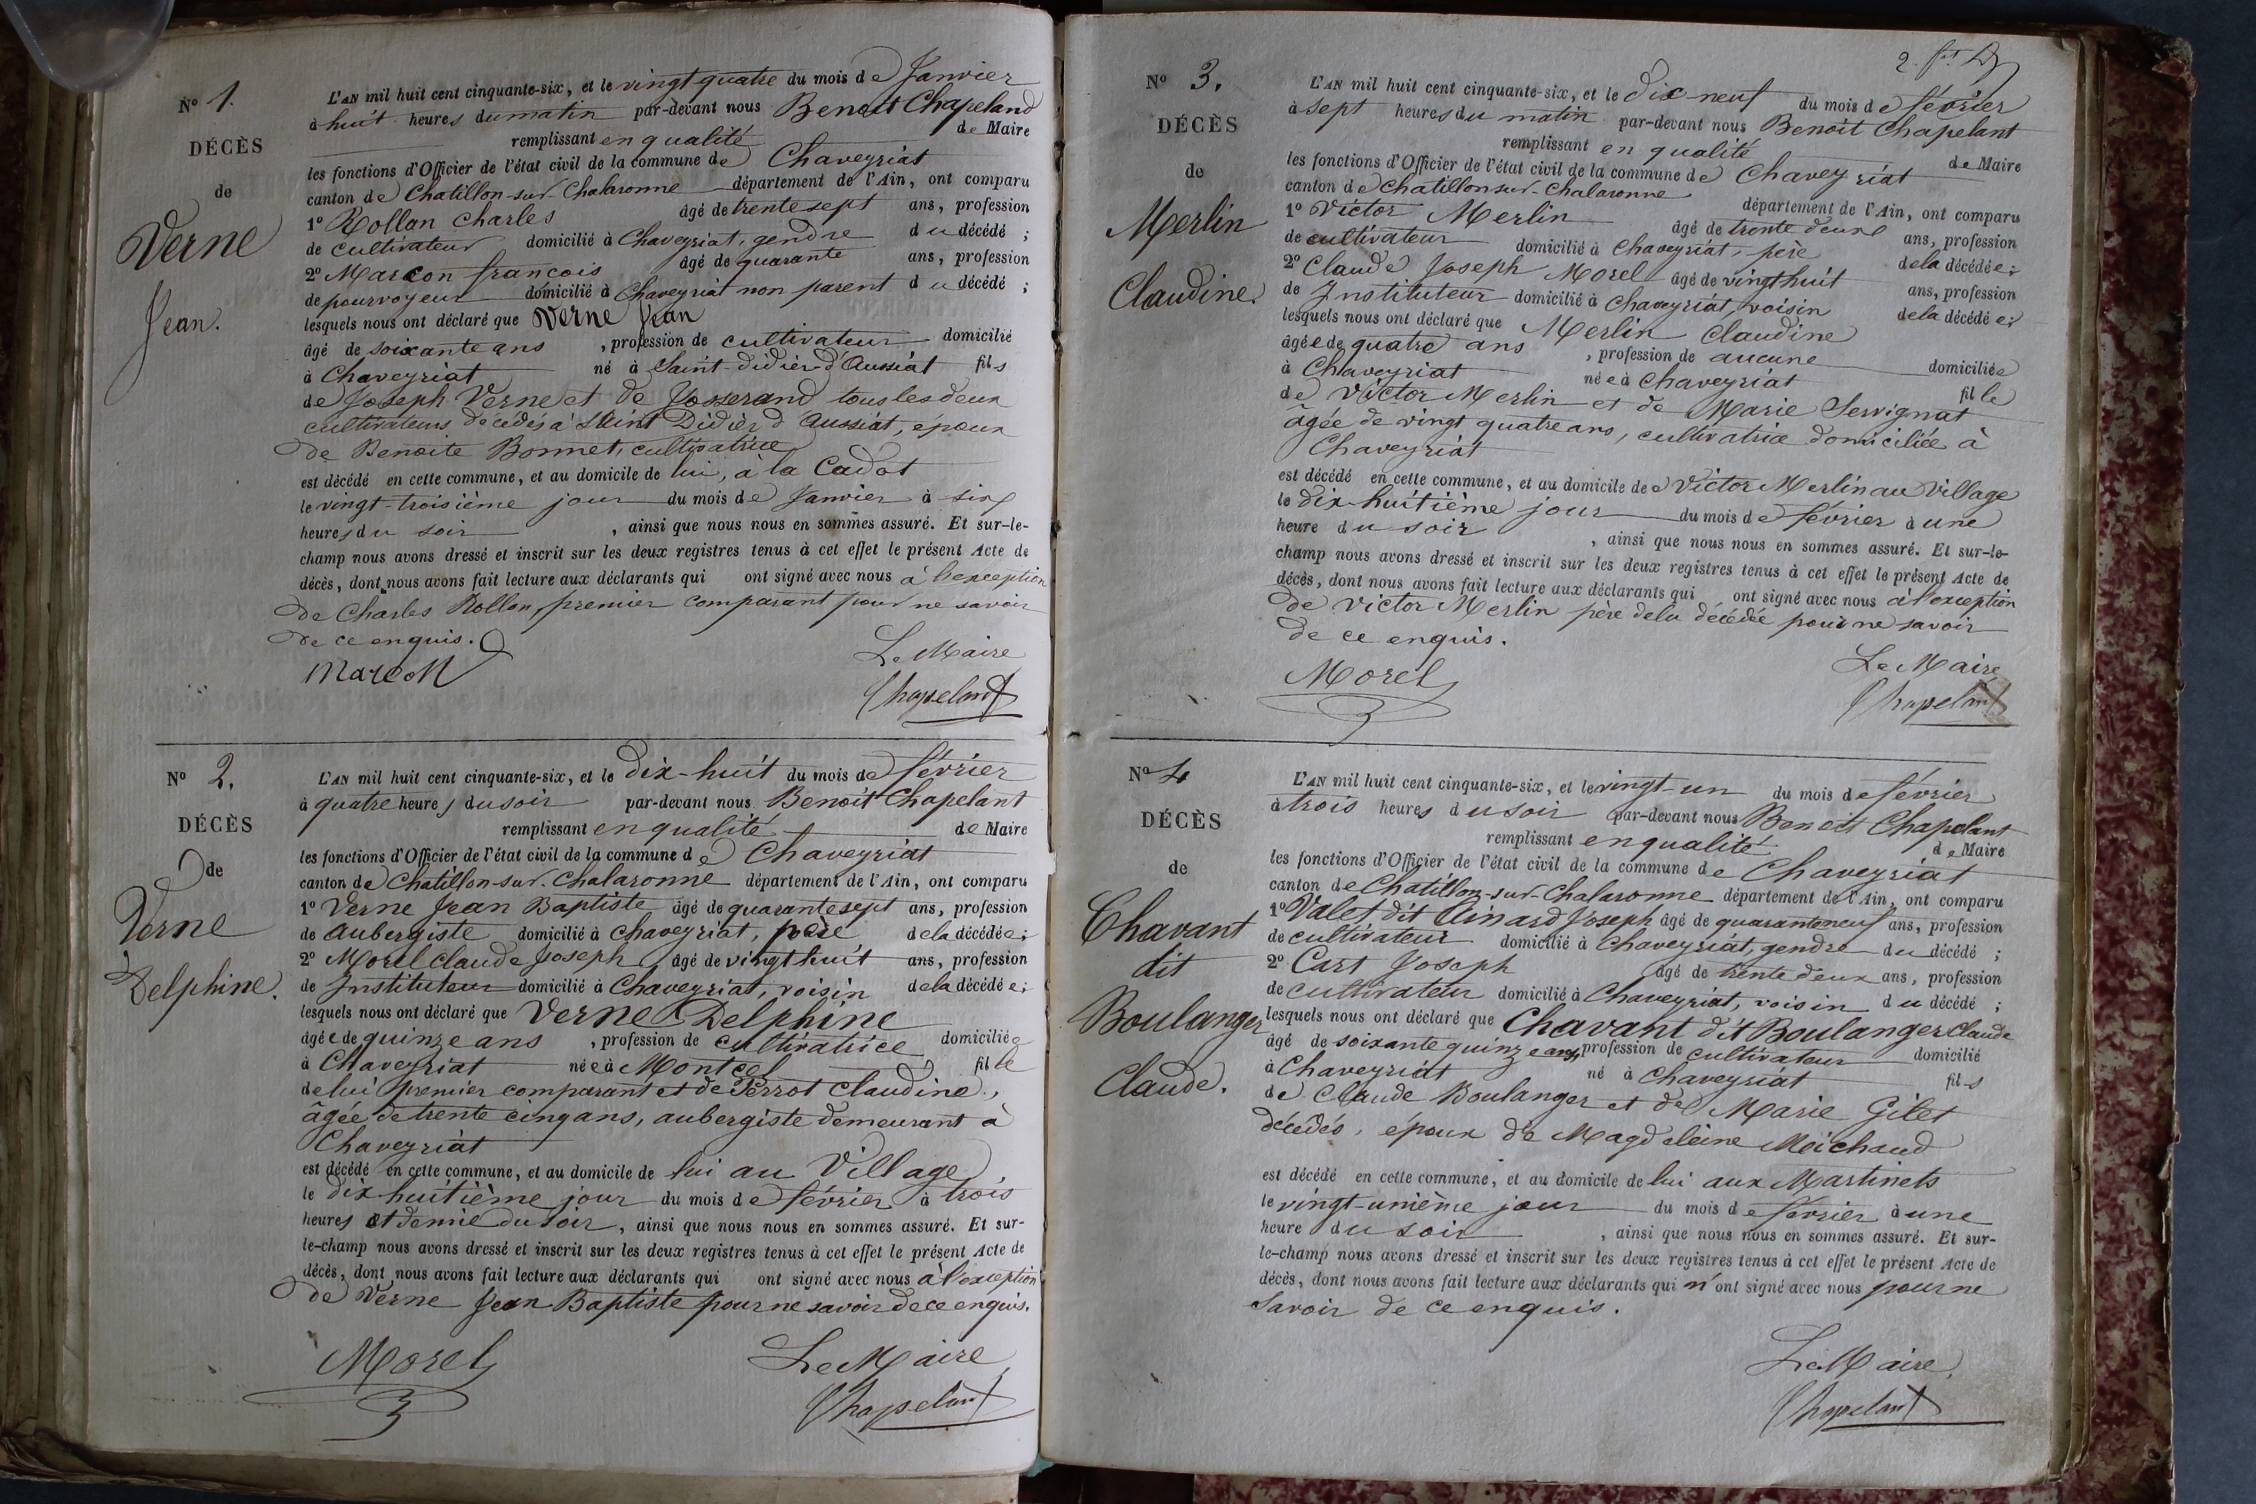 N° 1.
DÉCÈS
de
Verne
Jean.
L'AN mil huit cent cinquante-six, et le vingt quatre du mois de Janvier
à huit heures du matin par-devant nous Benoit Chapeland
remplissant en qualité de Maire
les fonctions d'Officier de l'état civil de la commune de Chaveyriat
canton de Chatillon-sur-Chalaronne département de l'Ain, ont comparu
1° Rollon Charles âgé de trente sept ans, profession
de cultivateur domicilié à Chaveyriat, gendre du décédé ;
2° Marcon francois âgé de quarante ans, profession
de pourvoyeur domicilié à Chaveyriat non parent du décédé ;
lesquels nous ont déclaré que Verne Jean
âgé de soixante ans , profession de cultivateur domicilié
à Chaveyriat né à Saint-didier-d'Aussiat fils
de Joseph Verne et de Josserand tous les deux
cultivateurs décédés à Saint Didier d'Aussiat, époux
de Benoite Bonnet, cultivatrice
est décédé en cette commune, et au domicile de lui, à la Cadot
le vingt-troisième jour du mois de Janvier à six
heures du soir , ainsi que nous nous en sommes assuré. Et sur-le-
champ nous avons dressé et inscrit sur les deux registres tenus à cet effet le présent Acte de
décès, dont nous avons fait lecture aux déclarants qui ont signé avec nous à l'exception
de Charles Rollon, premier comparant pour ne savoir
de ce enquis.
Le Maire
Marcon
Chapelant
N° 2.
DÉCÈS
de
Verne
Delphine.
L'AN mil huit cent cinquante-six, et le dix-huit du mois de février
à quatre heures du soir par-devant nous Benoit Chapelant
remplissant en qualité de Maire
les fonctions d'Officier de l'état civil de la commune de Chaveyriat
canton de Chatillon-sur-Chalaronne département de l'Ain, ont comparu
1° Verne Jean Baptiste âgé de quarante sept ans, profession
de aubergiste domicilié à Chaveyriat, père de la décédée ;
2° Morel Claude Joseph âgé de vingt huit ans, profession
de Instituteur domicilié à Chaveyriat, voisin de la décédée ;
lesquels nous ont déclaré que Verne Delphine
âgée de quinze ans , profession de cultivatrice domiciliée
à Chaveyriat née à Montcel fille
de lui premier comparant et de Perrot Claudine,
âgée de trente cinq ans, aubergiste demeurant à
Chaveyriat
est décédé en cette commune, et au domicile de lui au Village
le dix huitième jour du mois de février à trois
heures et demie du soir, ainsi que nous nous en sommes assuré. Et sur-
le-champ nous avons dressé et inscrit sur les deux registres tenus à cet effet le présent Acte de
décès, dont nous avons fait lecture aux déclarants qui ont signé avec nous à l'exception
de Verne Jean Baptiste pour ne savoir de ce enquis.
Morel
Le Maire,
Chapelant
N° 3.
DÉCÈS
de
Merlin
Claudine.
L'AN mil huit cent cinquante-six, et le dix-neuf du mois de février
à sept heures du matin par-devant nous Benoit Chapelant
remplissant en qualité de Maire
les fonctions d'Officier de l'état civil de la commune de Chaveyriat
canton de Chatillon sur-Chalaronne département de l'Ain, ont comparu
1° Victor Merlin âgé de trente deux ans, profession
de cultivateur domicilié à Chaveyriat, père de la décédée ;
2° Claude Joseph Morel âgé de vingt huit ans, profession
de Instituteur domicilié à Chaveyriat, voisin de la décédée ;
lesquels nous ont déclaré que Merlin Claudine
âgée de quatre ans , profession de aucune domiciliée
à Chaveyriat née à Chaveyriat fille
de Victor Merlin et de Marie Servignat
âgée de vingt quatre ans, cultivatrice domiciliée à
Chaveyriat
est décédé en cette commune, et au domicile de Victor Merlin au Village
le dix-huitième jour du mois de février à une
heure du soir , ainsi que nous nous en sommes assuré. Et sur-le-
champ nous avons dressé et inscrit sur les deux registres tenus à cet effet le présent Acte de
décès, dont nous avons fait lecture aux déclarants qui ont signé avec nous à l'exception
de Victor Merlin père de la décédée pour ne savoir
de ce enquis.
Morel
Le Maire,
Chapelant
N° 4
DÉCÈS
de
Chavant
dit
Boulanger
Claude.
L'AN mil huit cent cinquante-six, et le vingt-un du mois de février
à trois heures du soir par-devant nous Benoit Chapelant
remplissant en qualité de Maire
les fonctions d'Officier de l'état civil de la commune de Chaveyriat
canton de Chatillon-sur-Chalaronne département de l'Ain, ont comparu
1° Valet dit Ainard Joseph âgé de quarante neuf ans, profession
de cultivateur domicilié à Chaveyriat, gendre du décédé ;
2° Cart Joseph âgé de trente deux ans, profession
de cultivateur domicilié à Chaveyriat, voisin du décédé ;
lesquels nous ont déclaré que Chavant dit Boulanger Claude
âgé de soixante quinze ans, profession de cultivateur domicilié
à Chaveyriat né à Chaveyriat fils
de Claude Boulanger et de Marie Gilet
décédés, époux de Magdeleine Meichaud
est décédé en cette commune, et au domicile de lui aux Martinets
le vingt-unième jour du mois de février à une
heure du soir , ainsi que nous nous en sommes assuré. Et sur-
le-champ nous avons dressé et inscrit sur les deux registres tenus à cet effet le présent Acte de
décès, dont nous avons fait lecture aux déclarants qui n'ont signé avec nous pour ne
savoir de ce enquis.
Le Maire,
Chapelant